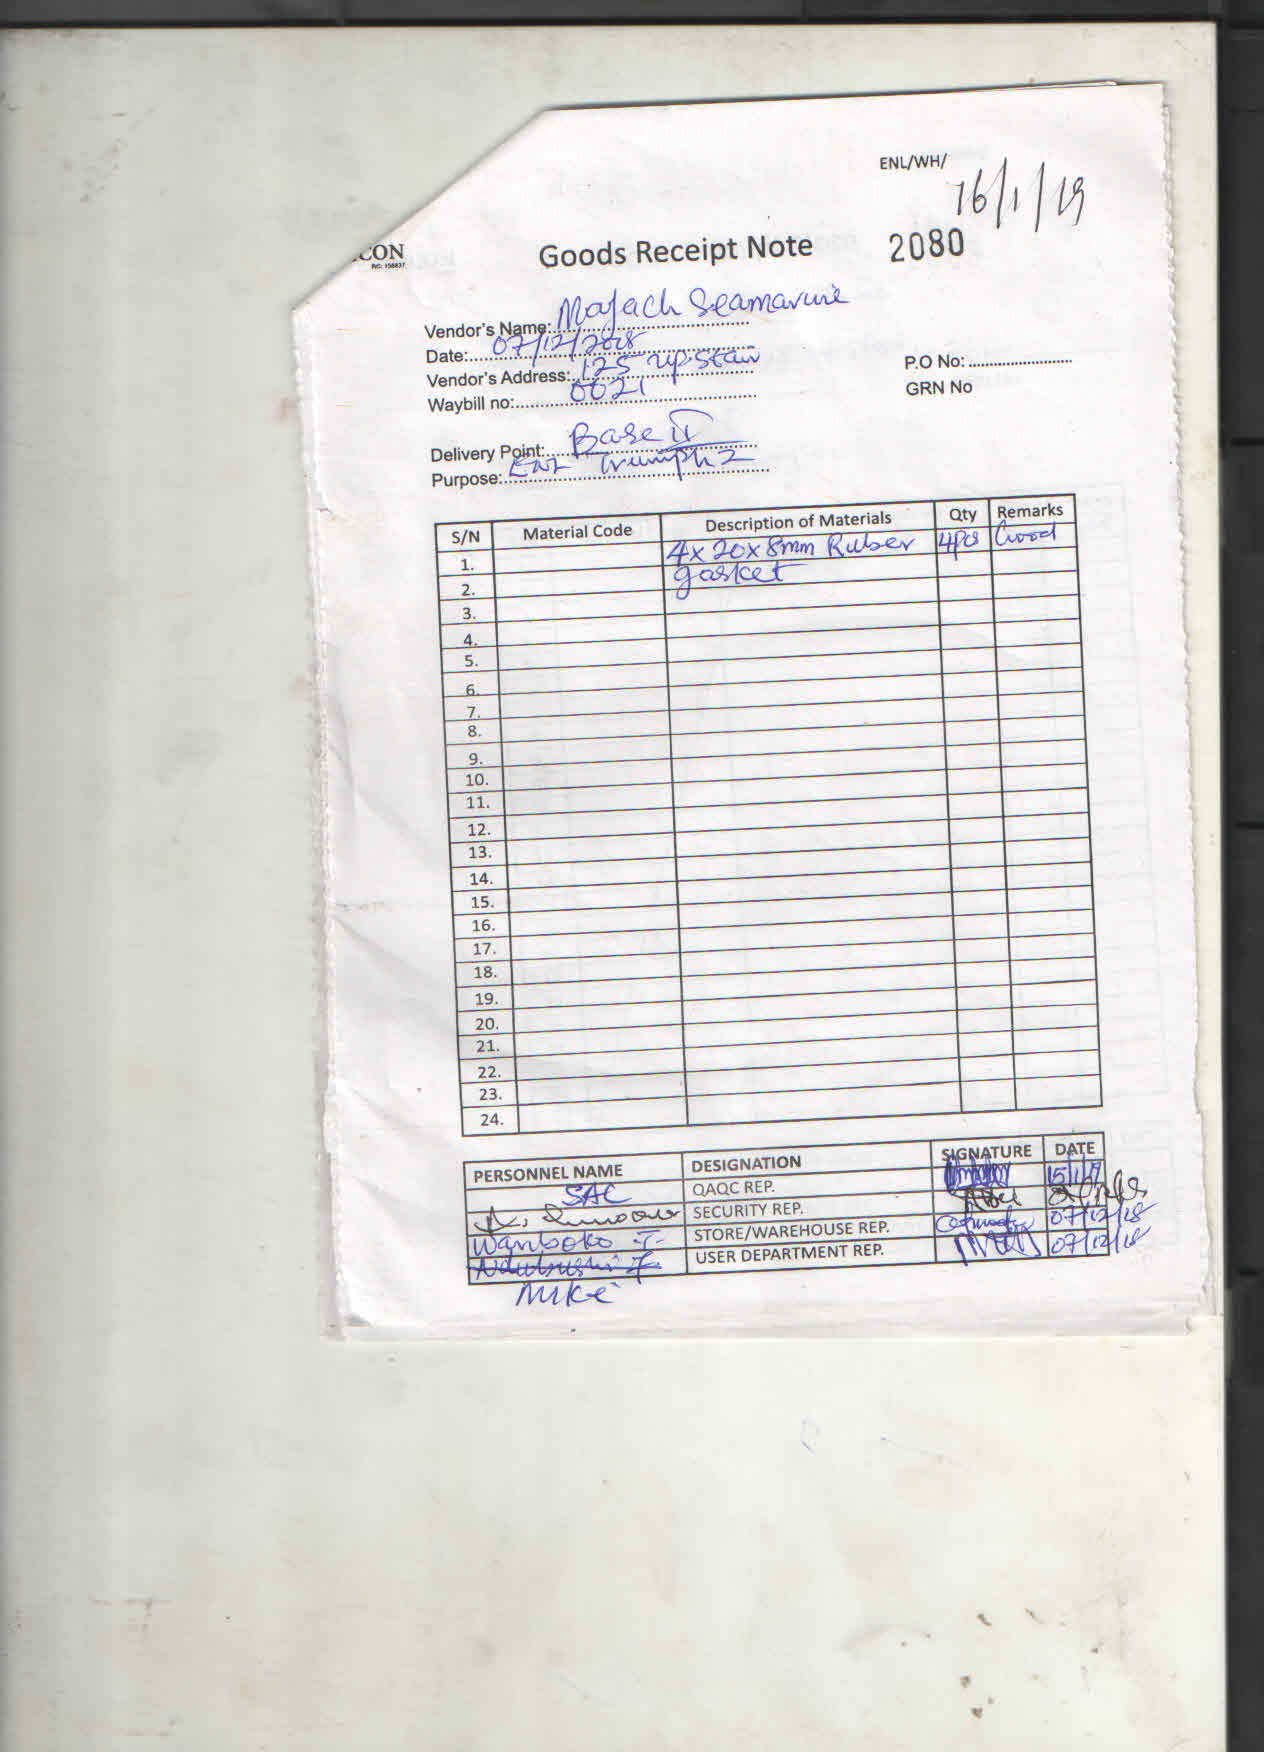 ENL/WH/
16/1/19
CON
RC: 155837
Goods Receipt Note
2080
Vendor's Name: Majach Seamarine
Date: 07/12/2018
Vendor's Address: 125 upstair
P.O No:
Waybill no: 0021
GRN No
Delivery Point: Base II
Purpose: ENL Triumph 2
S/N Material Code Description of Materials Qty Remarks
1. 4x20x8mm Rubber 4pcs Good
2. gasket
3.
4.
5.
6.
7.
8.
9.
10.
11.
12.
13.
14.
15.
16.
17.
18.
19.
20.
21.
22.
23.
24.
PERSONNEL NAME DESIGNATION SIGNATURE DATE
SAC QAQC REP. 15/1/19
SECURITY REP.
Wariboko I. STORE/WAREHOUSE REP. 07/12/18
USER DEPARTMENT REP. 07/12/18
Mike